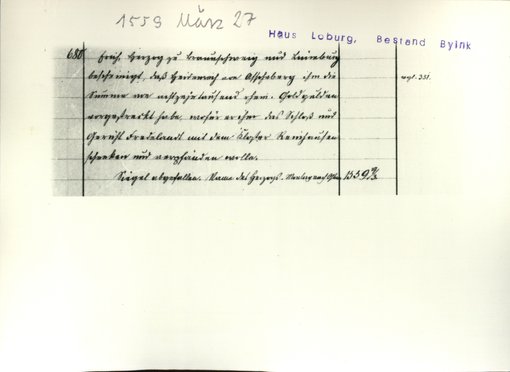 1559 März 27
Haus Loburg, Bestand Byink
680 Erich Herzog zu Braunschweig und Lüneburg
bescheinigt, daß Heidenreich von Asscheberg ihm die
Summe von achtzehntausend rhein. Goldgulden
vorgestreckt habe, wofür er ihm das Schloß und
Gericht Fredelandt mit dem Kloster Reinhausen
und verpfänden wolle.
Siegel abgefallen. Name des Herzogs. Montag nach 1559 27/3
vgl. 351.